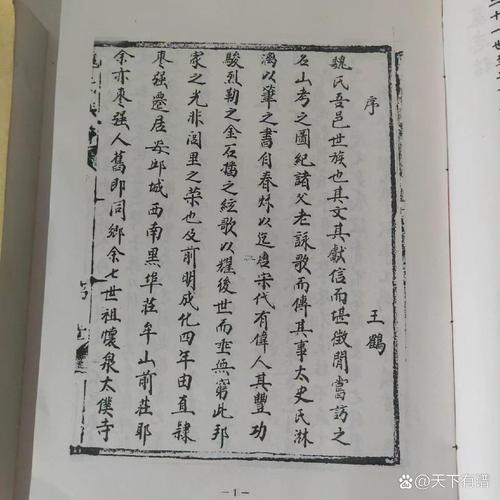 序
王鶴
魏氏吾邑世族也其文其獻信而堪徴聞嘗訪之
名山考之圖紀諸父老詠歌而傳其事太史氏淋
漓以華之書自春秋以迄唐宋代有偉人其豐功
駿烈勒之金石播之絃歌以耀後世而垂無窮此邦
家之光非閭里之榮也及前明成化四年由直隸
棗强遷居安邱城西南黑埠莊牟山前莊耶
余亦棗强人舊即同鄉余七世祖懷泉太僕寺
－1－
天下有譜